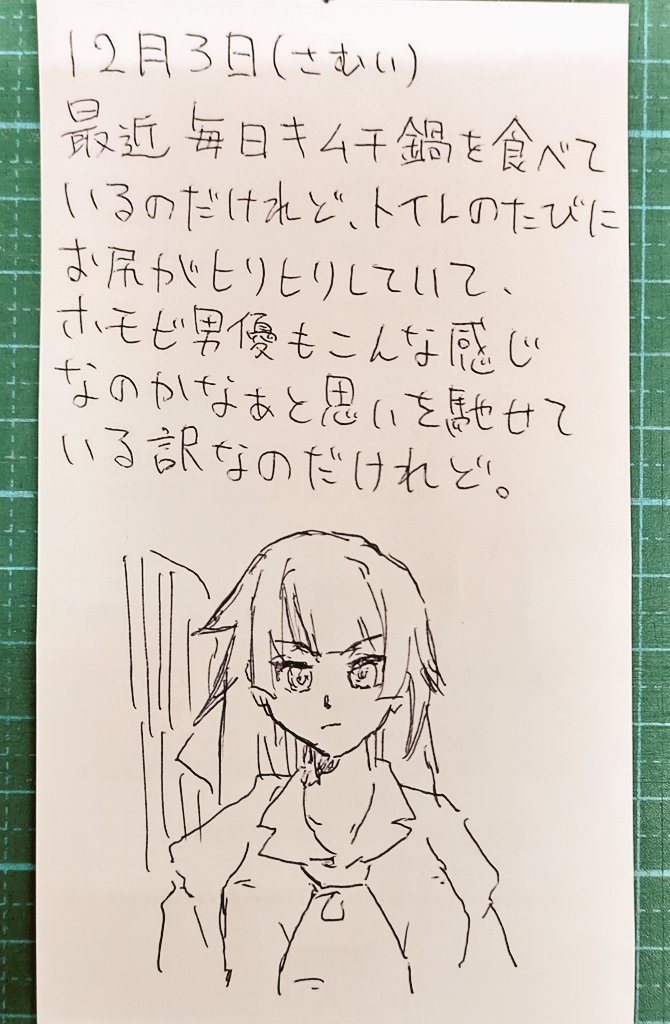 12月3日(さむい)
最近 毎日キムチ鍋を食べて
いるのだけれど、トイレのたびに
お尻がヒリヒリしていて、
ホモビ男優もこんな感じ
なのかなぁと思いを馳せて
いる訳なのだけれど。